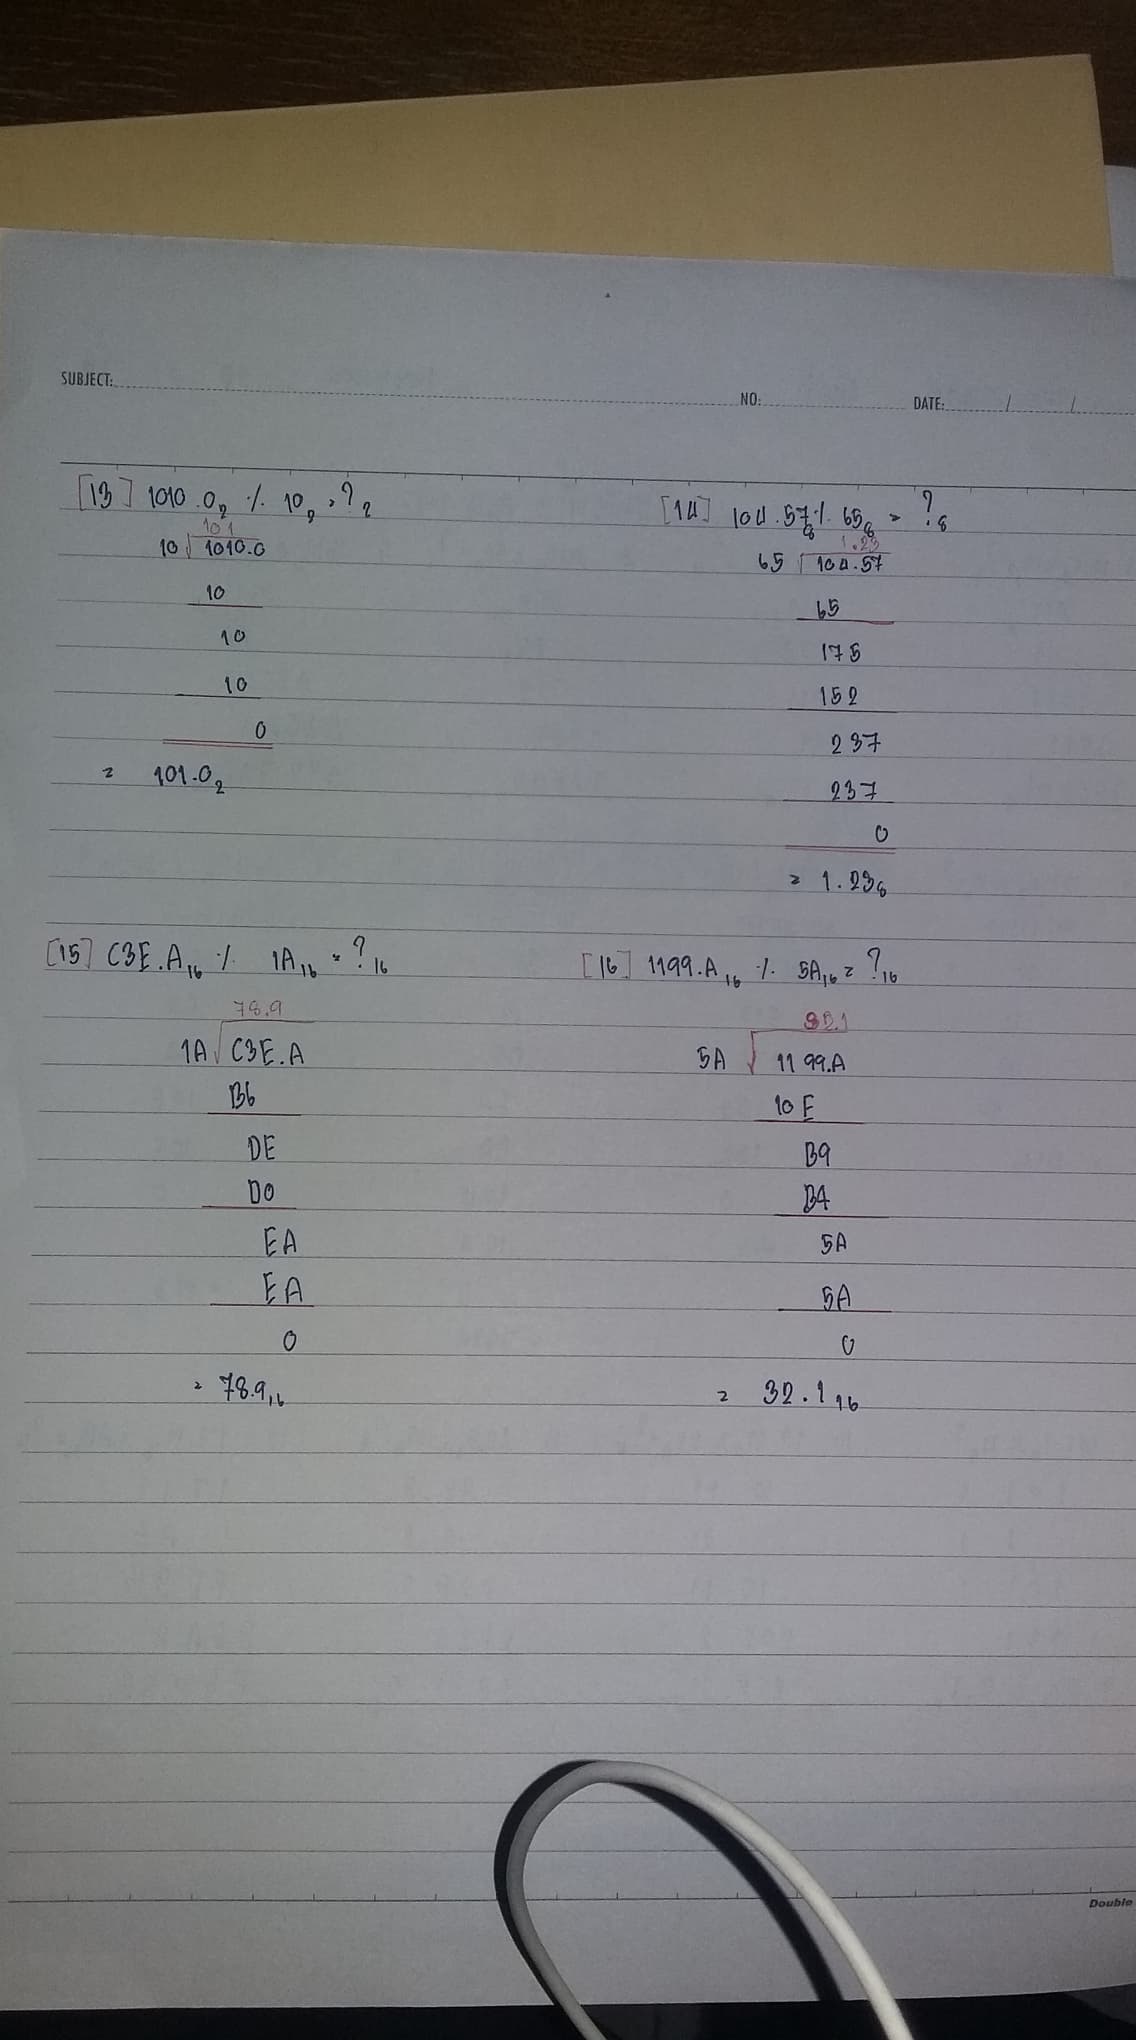 SUBJECT:
NO:
DATE: / /
[13] 1010.0₂ ٪ 10₂ = ?₂
101
10 √1010.0
10
10
10
0
= 101.0₂
[14] 104.57₈ ٪ 65₈ = ?₈
1.23
65 √104.57
65
175
152
237
237
0
= 1.23₈
[15] C3E.A₁₆ ٪ 1A₁₆ = ?₁₆
78.9
1A √C3E.A
B6
DE
D0
EA
EA
0
= 78.9₁₆
[16] 1199.A₁₆ ٪ 5A₁₆ = ?₁₆
32.1
5A √1199.A
10E
B9
B4
5A
5A
0
= 32.1₁₆
Double